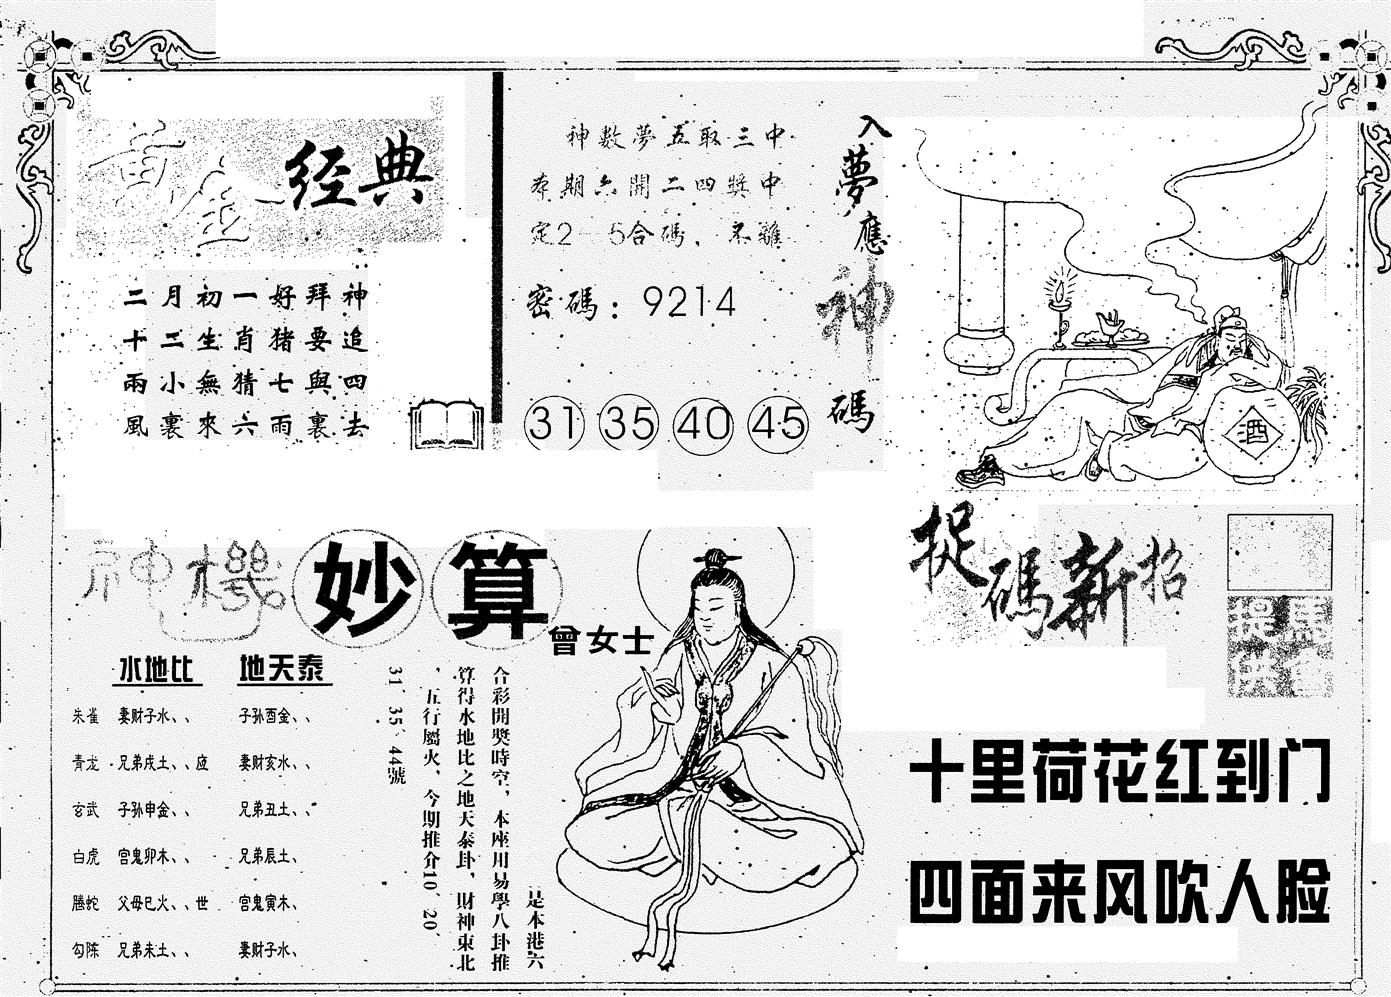 黄金经典
二月初一好拜神
十二生肖猪要追
兩小無猜七與四
風裏來六雨裏去
神數夢五取三中
本期六開二四獎中
定2 5合碼，不離
密碼：9214
31 35 40 45
入夢應神碼
酒
神機妙算
曾女士
水地比 地天泰
朱雀 妻财子水、、 子孙酉金、、
青龙 兄弟戌土、、应 妻财亥水、、
玄武 子孙申金、、 兄弟丑土、、
白虎 官鬼卯木、、 兄弟辰土、
螣蛇 父母巳火、、世 官鬼寅木、
勾陈 兄弟未土、、 妻财子水、
是本港六
合彩開獎時空，本座用易學八卦推
算得水地比之地天泰卦，財神東北
，五行屬火，今期推介10、20、
31、35、44號
捉碼新招
十里荷花红到门
四面来风吹人脸